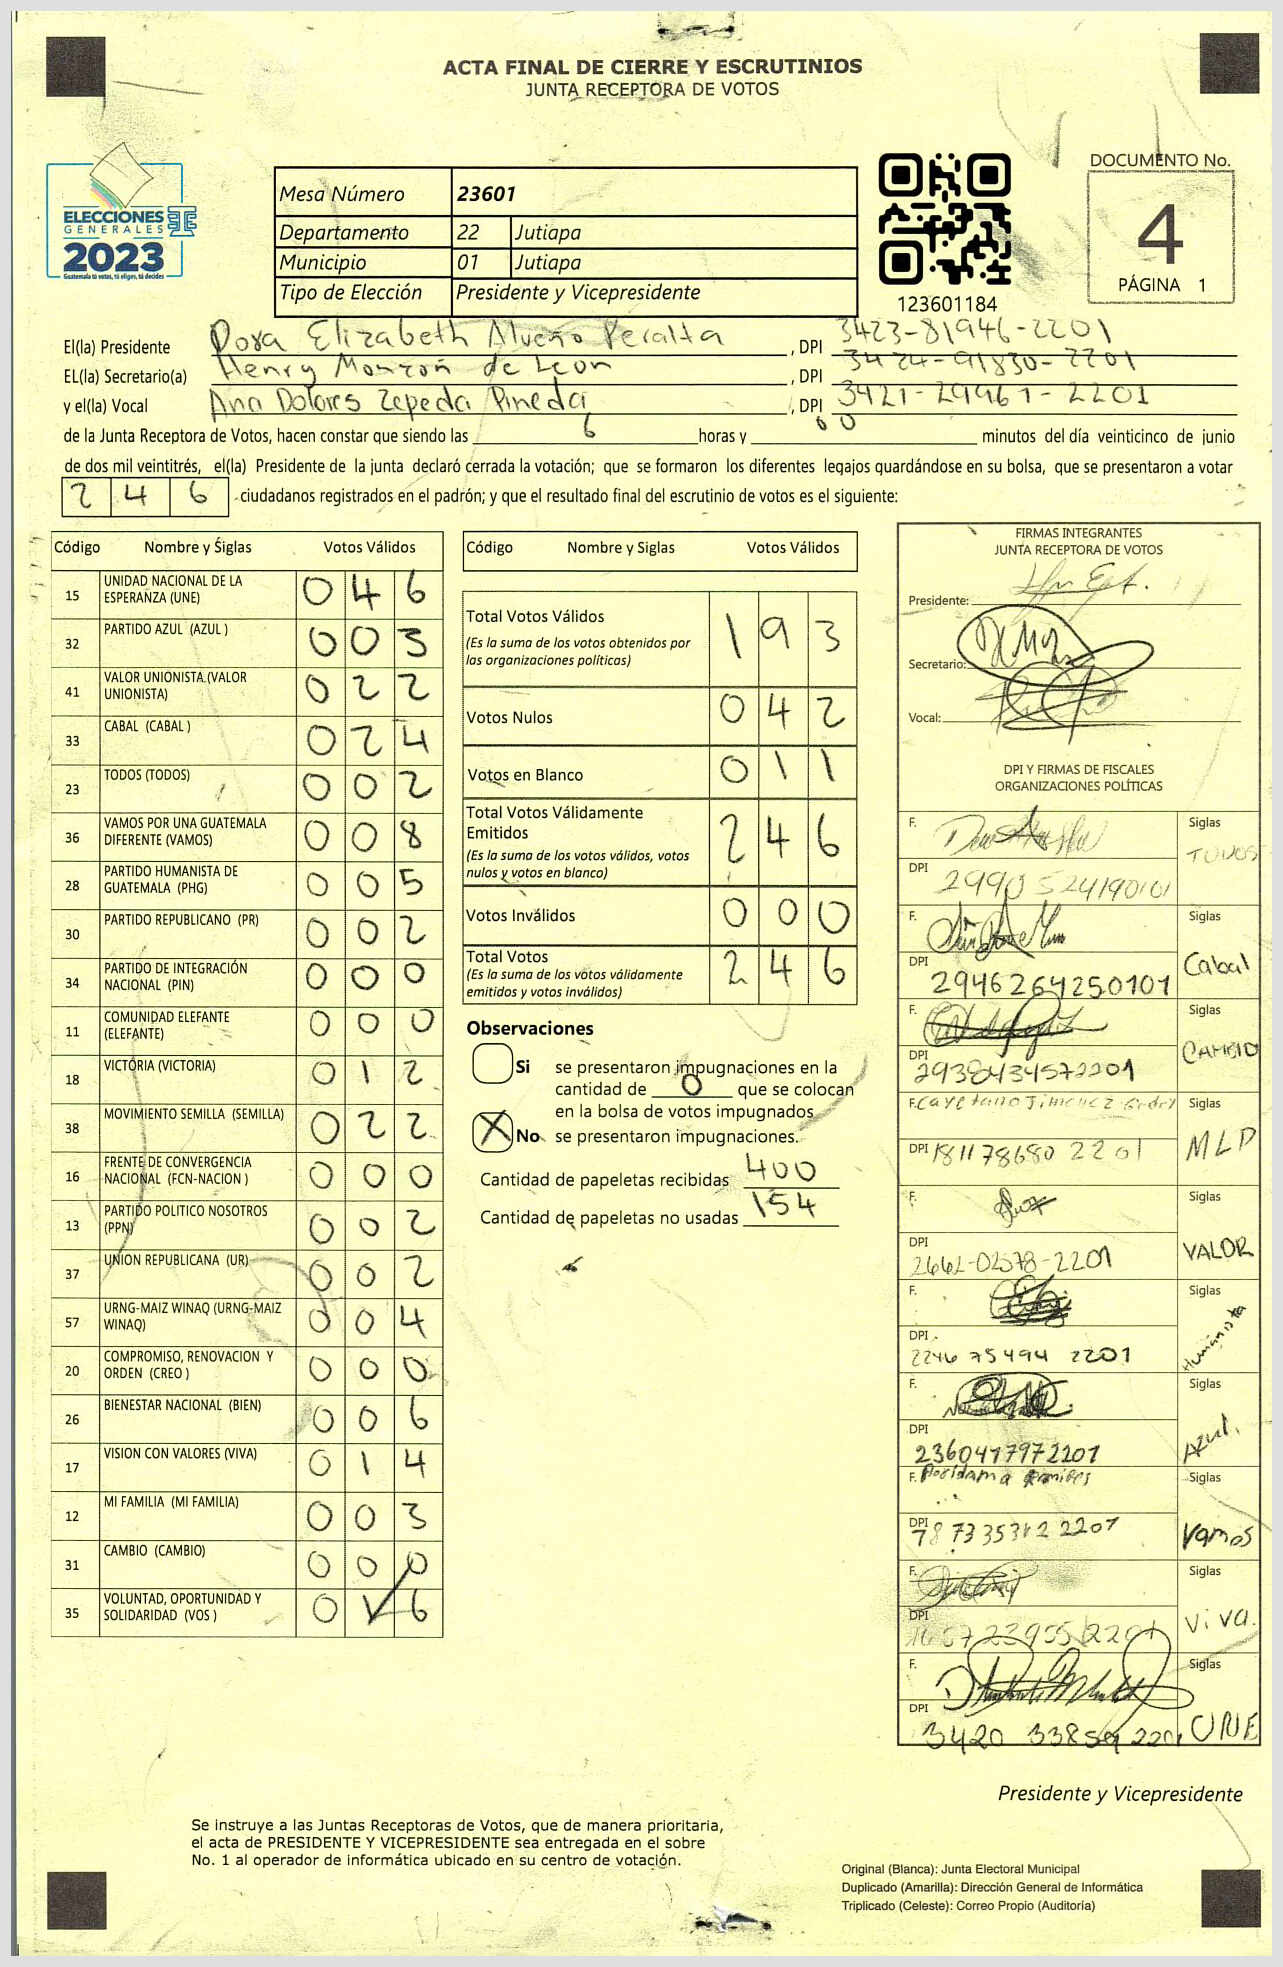 ACTA FINAL DE CIERRE Y ESCRUTINIOS
JUNTA RECEPTORA DE VOTOS
ELECCIONES
GENERALES
2023
Guatemala tú votas, tú eliges, tú decides
Mesa Número 23601
Departamento 22 Jutiapa
Municipio 01 Jutiapa
Tipo de Elección Presidente y Vicepresidente
123601184
DOCUMENTO No.
4
PÁGINA 1
El(la) Presidente Elizabeth Peralta , DPI 3423-81946-2201
EL(la) Secretario(a) Henry Monzón de Leon , DPI 3424-91830-2201
y el(la) Vocal Ana Dolores Zepeda Pineda , DPI 3421-29961-2201
de la Junta Receptora de Votos, hacen constar que siendo las 6 horas y 00 minutos del día veinticinco de junio
de dos mil veintitrés, el(la) Presidente de la junta declaró cerrada la votación; que se formaron los diferentes legajos guardándose en su bolsa, que se presentaron a votar
246 ciudadanos registrados en el padrón; y que el resultado final del escrutinio de votos es el siguiente:
Código Nombre y Siglas Votos Válidos
15 UNIDAD NACIONAL DE LA ESPERANZA (UNE) 046
32 PARTIDO AZUL (AZUL ) 003
41 VALOR UNIONISTA (VALOR UNIONISTA) 022
33 CABAL (CABAL ) 024
23 TODOS (TODOS) 002
36 VAMOS POR UNA GUATEMALA DIFERENTE (VAMOS) 008
28 PARTIDO HUMANISTA DE GUATEMALA (PHG) 005
30 PARTIDO REPUBLICANO (PR) 002
34 PARTIDO DE INTEGRACIÓN NACIONAL (PIN) 000
11 COMUNIDAD ELEFANTE (ELEFANTE) 000
18 VICTORIA (VICTORIA) 012
38 MOVIMIENTO SEMILLA (SEMILLA) 022
16 FRENTE DE CONVERGENCIA NACIONAL (FCN-NACION ) 000
13 PARTIDO POLITICO NOSOTROS (PPN) 002
37 UNION REPUBLICANA (UR) 002
57 URNG-MAIZ WINAQ (URNG-MAIZ WINAQ) 004
20 COMPROMISO, RENOVACION Y ORDEN (CREO ) 000
26 BIENESTAR NACIONAL (BIEN) 006
17 VISION CON VALORES (VIVA) 014
12 MI FAMILIA (MI FAMILIA) 003
31 CAMBIO (CAMBIO) 000
35 VOLUNTAD, OPORTUNIDAD Y SOLIDARIDAD (VOS ) 0 6
Código Nombre y Siglas Votos Válidos
Total Votos Válidos 193
(Es la suma de los votos obtenidos por
las organizaciones políticas)
Votos Nulos 042
Votos en Blanco 011
Total Votos Válidamente
Emitidos 246
(Es la suma de los votos válidos, votos
nulos y votos en blanco)
Votos Inválidos 000
Total Votos 246
(Es la suma de los votos válidamente
emitidos y votos inválidos)
Observaciones
Si se presentaron impugnaciones en la
cantidad de 0 que se colocan
en la bolsa de votos impugnados
X No se presentaron impugnaciones.
Cantidad de papeletas recibidas 400
Cantidad de papeletas no usadas 154
FIRMAS INTEGRANTES
JUNTA RECEPTORA DE VOTOS
Presidente:
Secretario:
Vocal:
DPI Y FIRMAS DE FISCALES
ORGANIZACIONES POLÍTICAS
F. Siglas TODOS
DPI 2990 524190101
F. Siglas Cabal
DPI 2946264250101
F. Siglas CAMBIO
DPI 2938434572201
F. Cayetano Jimenez Siglas MLP
DPI 181178680 2201
F. Siglas VALOR
DPI 2662-02578-2201
F. Siglas Humanista
DPI 2246 75494 2201
F. Siglas Azul.
DPI 2360417972201
F. Siglas Vamos
DPI
F. Siglas Viva.
DPI
F. Siglas UNE
DPI 3420
Presidente y Vicepresidente
Se instruye a las Juntas Receptoras de Votos, que de manera prioritaria,
el acta de PRESIDENTE Y VICEPRESIDENTE sea entregada en el sobre
No. 1 al operador de informática ubicado en su centro de votación.
Original (Blanca): Junta Electoral Municipal
Duplicado (Amarilla): Dirección General de Informática
Triplicado (Celeste): Correo Propio (Auditoría)